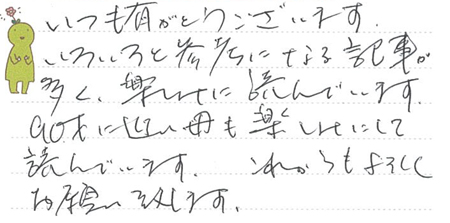 いつも有がとうございます。
いろいろと参考になる記事が
多く、楽しみに読んでいます。
90才に近い母も楽しみにして
読んでいます。これからもよろしく
お願い致します。